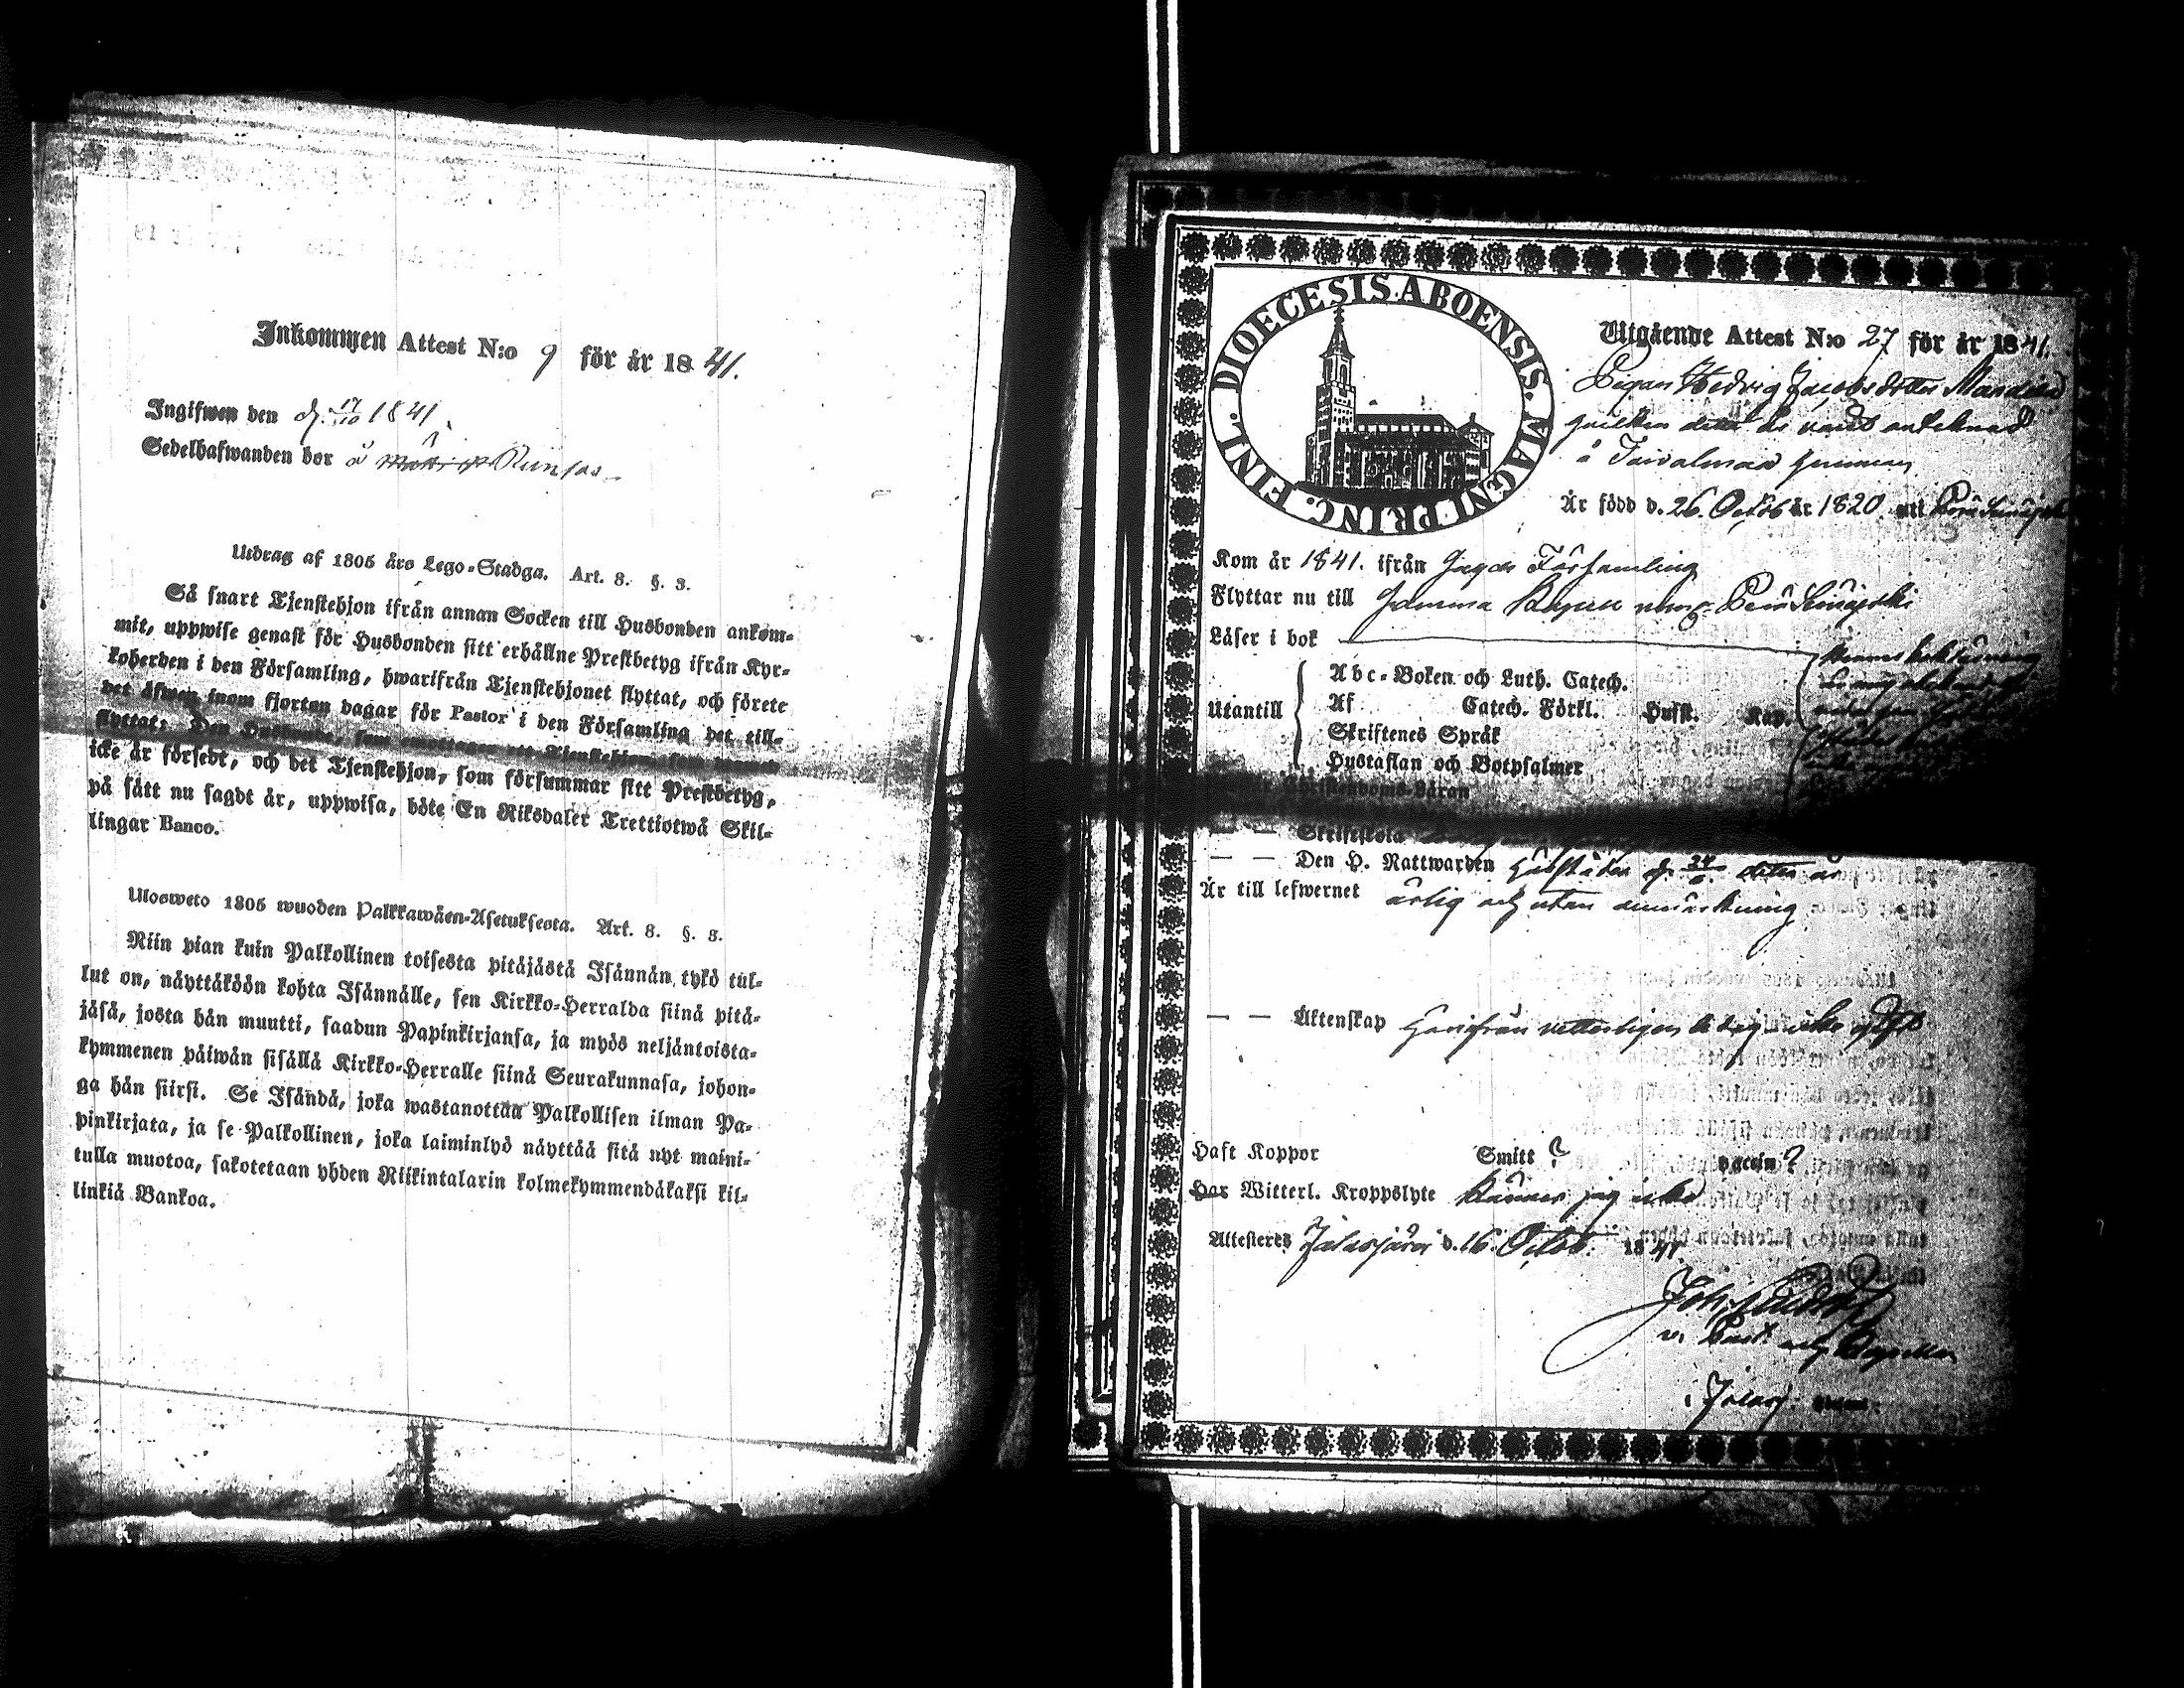 Inkommen Attest N:o 9 för år 1841.
Ingifwen den d. 17/10 1841.
Sedelhafwanden bor å
Utdrag af 1805 års Lego-Stadga. Art. 8. §. 3.
Så snart Tjenstehjon ifrån annan Socken till Husbonden ankom-
mit, uppwise genast för Husbonden sitt erhållne Prestbetyg ifrån Kyr-
koherden i den Församling, hwarifrån Tjenstehjonet flyttat, och förete
det äfwen inom fjorton dagar för Pastor i den Församling det till-
flyttat. Den Husbonde, som emottager ett Tjenstehjon, som
icke är försedt, och det Tjenstehjon, som försummar sitt Prestbetyg,
på sätt nu sagdt är, uppwisa, böte En Riksdaler Trettiotwå Skil-
lingar Banco.
Ulosweto 1805 wuoden Palkkawäen-Asetuksesta. Art. 8. §. 3.
Niin pian kuin Palkollinen toisesta pitäjästä Isännän tykö tul-
lut on, näyttäköön kohta Isännälle, sen Kirkko-Herralda siinä pitä-
jäsä, josta hän muutti, saadun Papinkirjansa, ja myös neljäntoista-
kymmenen päiwän sisällä Kirkko-Herralle siinä Seurakunnasa, johon-
ga hän siirsi. Se Isändä, joka wastanottaa Palkollisen ilman Pa-
pinkirjata, ja se Palkollinen, joka laiminlyö näyttää sitä nyt maini-
tulla muotoa, sakotetaan yhden Riikintalarin kolmekymmendäkaksi kil-
linkiä Bankoa.
DIOECESIS ABOENSIS. MAGNI PRINC. FINL.
Utgående Attest N:o 27 för år 1841.
Pigan Hedvig Jacobsdotter
hvilken detta år varit antecknad
å
Är född d. 26. Octob år 1820 uti
Kom år 1841. ifrån Församling
Flyttar nu till
Läser i bok
Utantill
Abc-Boken och Luth. Catech.
Af Catech. Förkl. Hufst. Kap.
Skriftenes Språk
Hustaflan och Botpsalmer
Christendoms-Läran
— — Skriftskola
— — Den H. Nattwarden d. 24/6 detta år
Är till lefwernet ärlig och utan anmärkning
— — Äktenskap härifrån vitterligen ledig
Haft Koppor Smitt ? vaccin ?
Har Witterl. Kroppslyte känner jag icke
Attesteres Jalasjärvi d. 16. Octob. 1841
Joh.
v. Past. och Capellan
i Jalasj.